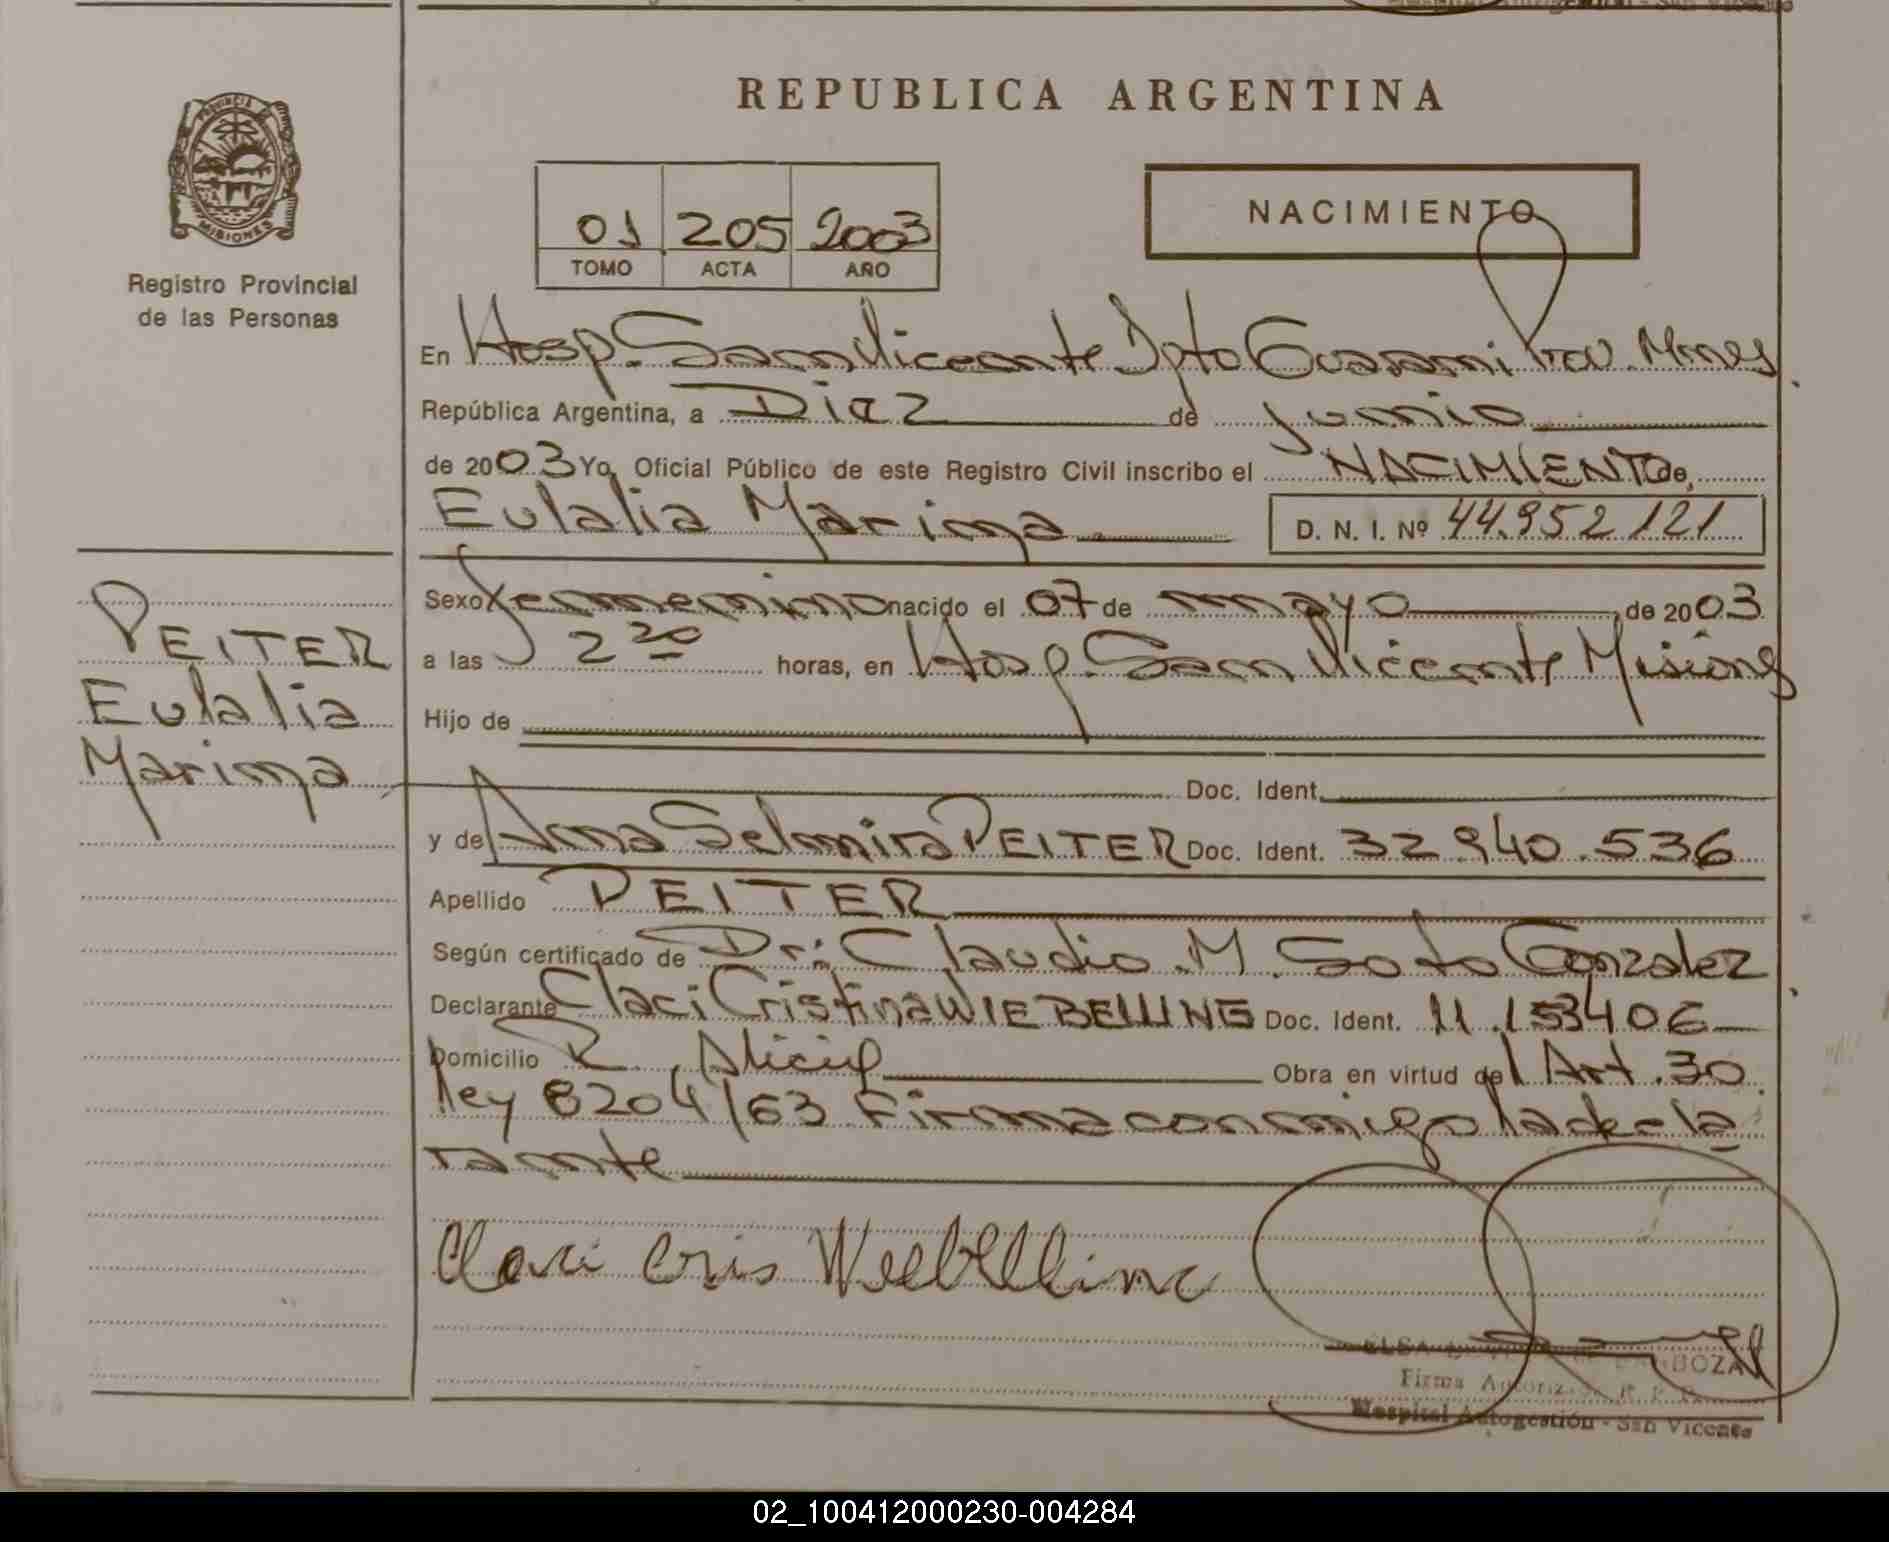 REPUBLICA ARGENTINA
PROVINCIA DE
MISIONES
Registro Provincial
de las Personas
01 205 2003
TOMO ACTA AÑO
NACIMIENTO
En Hosp. San Vicente Dpto Guarani Prov. Mnes.
República Argentina, a Diez de junio
de 2003 Yo, Oficial Público de este Registro Civil inscribo el NACIMIENTO de,
Eulalia Marina D. N. I. Nº 44.952121
PEITER
Eulalia
Marina
Sexo femenino nacido el 07 de mayo de 2003
a las 2 20 horas, en Hosp. San Vicente Misiones
Hijo de
Doc. Ident.
y de Anna Selmira PEITER Doc. Ident. 32 940.536
Apellido PEITER
Según certificado de Dr: Claudio M. Soto Gonzalez
Declarante Claci Cristina WIEBELLING Doc. Ident. 11.153406
Domicilio Alicia Obra en virtud del Art.30
ley 8204/63 Firma conmigo la decla
rante
Claci Cris Wiebelling
BOZA
Firma Autoriz R. P.
Hospital Autogestión - San Vicente
02_100412000230-004284